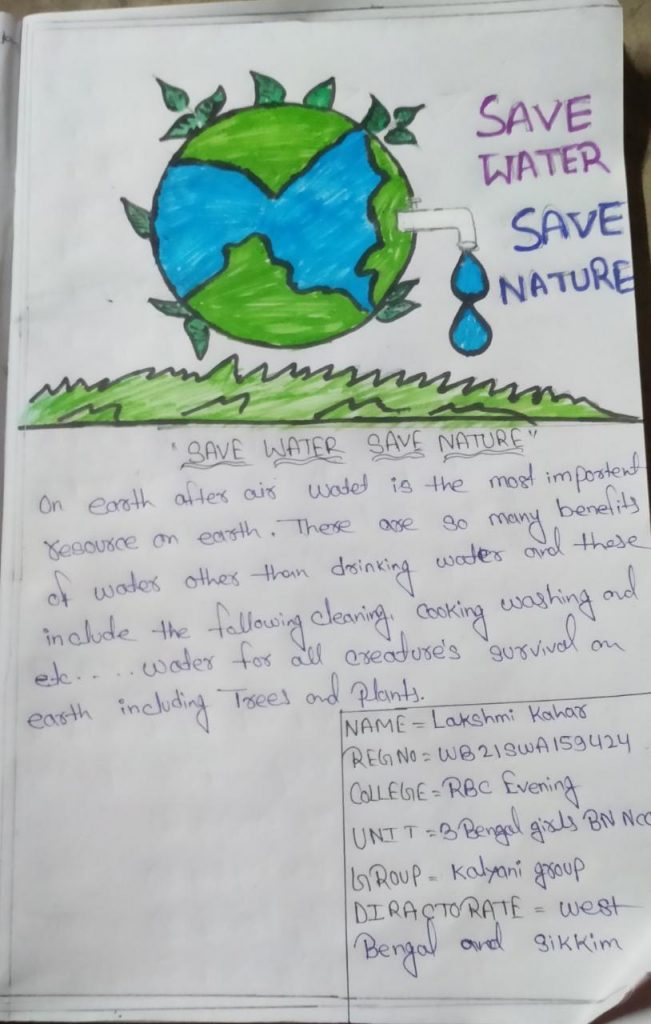 SAVE
WATER
SAVE
NATURE
"SAVE WATER SAVE NATURE"
On earth after air water is the most importent
resource on earth. There are so many benefits
of water other than drinking water and these
include the following cleaning, cooking washing and
etc..... water for all creature's survival on
earth including Trees and Plants.
NAME = Lakshmi Kahar
REG NO = WB21SWA159424
COLLEGE = RBC Evening
UNIT = 3 Bengal girls BN NCC
GROUP = Kalyani group
DIRACTORATE = West
Bengal and Sikkim